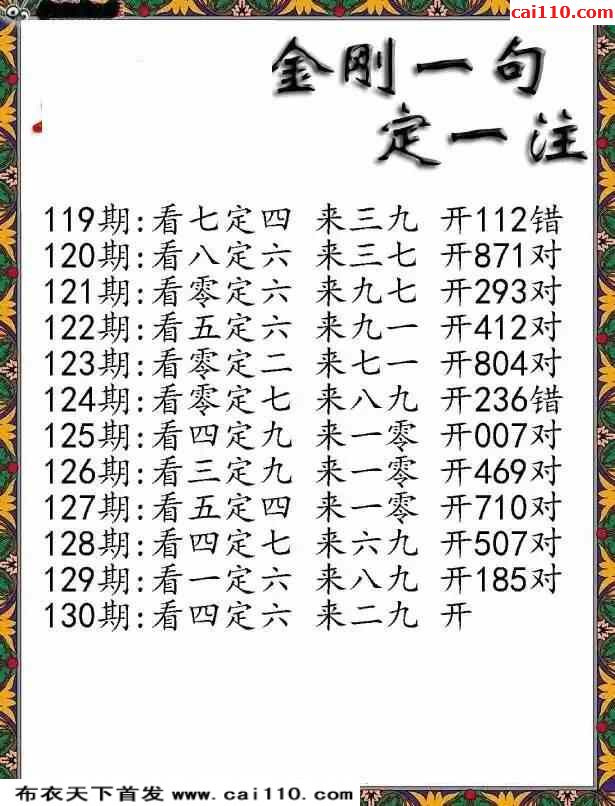 cai110.com
金刚一句
定一注
119期:看七定四 来三九 开112错
120期:看八定六 来三七 开871对
121期:看零定六 来九七 开293对
122期:看五定六 来九一 开412对
123期:看零定二 来七一 开804对
124期:看零定七 来八九 开236错
125期:看四定九 来一零 开007对
126期:看三定九 来一零 开469对
127期:看五定四 来一零 开710对
128期:看四定七 来六九 开507对
129期:看一定六 来八九 开185对
130期:看四定六 来二九 开
布衣天下首发 www.cai110.com